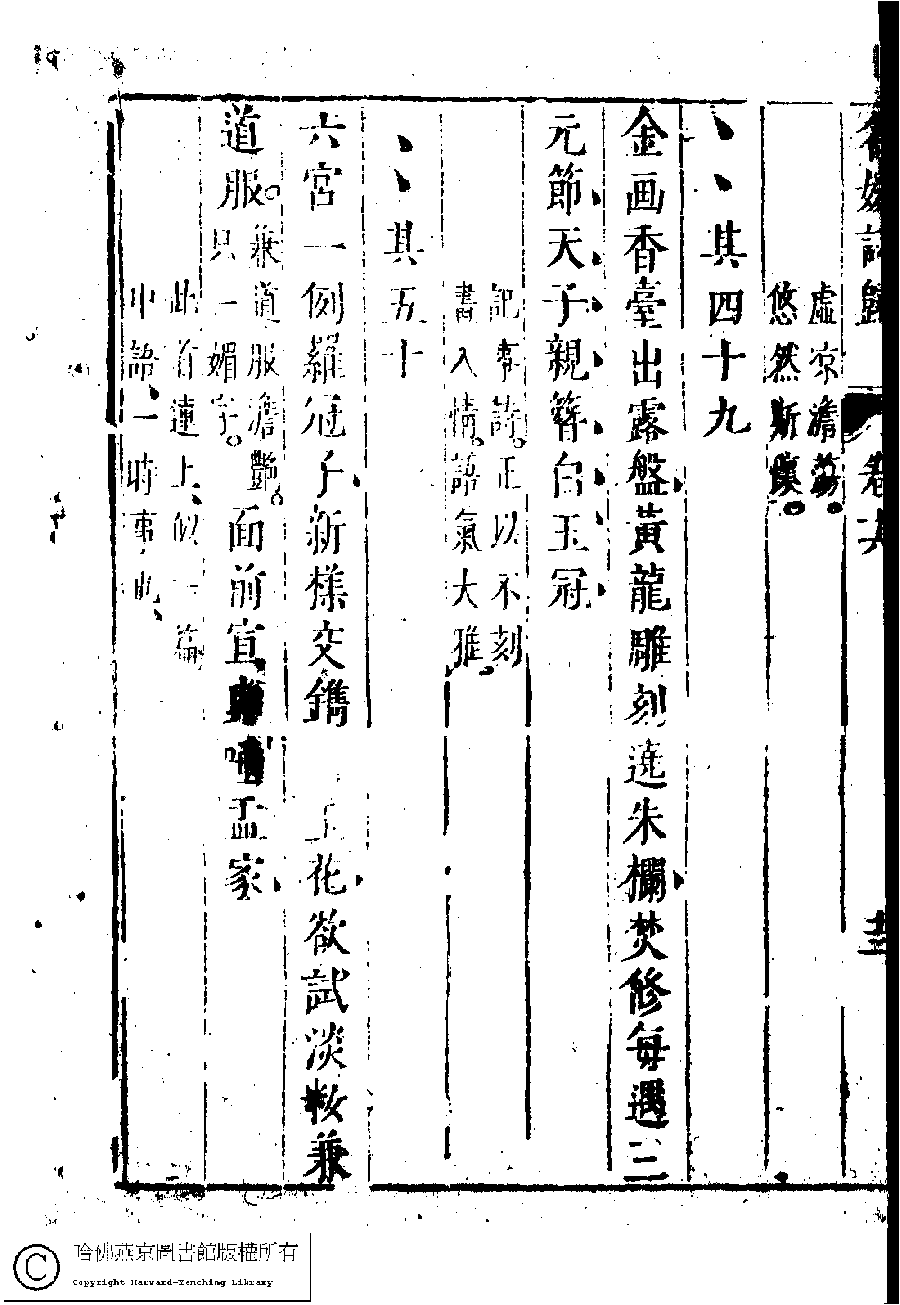 名媛詩歸
卷六
虛凉澹蕩。
悠然斯嘆。
其四十九
金画香臺出露盤黃龍雕刻遶朱欄焚修每遇三
元節天子親簪白玉冠
記事詩。正以不刻
畫入情。語氣大雅。
其五十
六宮一例羅冠子新様交鐫 玉花欲試淡粧兼
道服。
兼道服澹艷。
只一媚字。
面前宣 唾盂家
此首連上、似一篇
中語、一時事也、
哈佛燕京圖書館版權所有
Copyright Harvard-Yenching Library